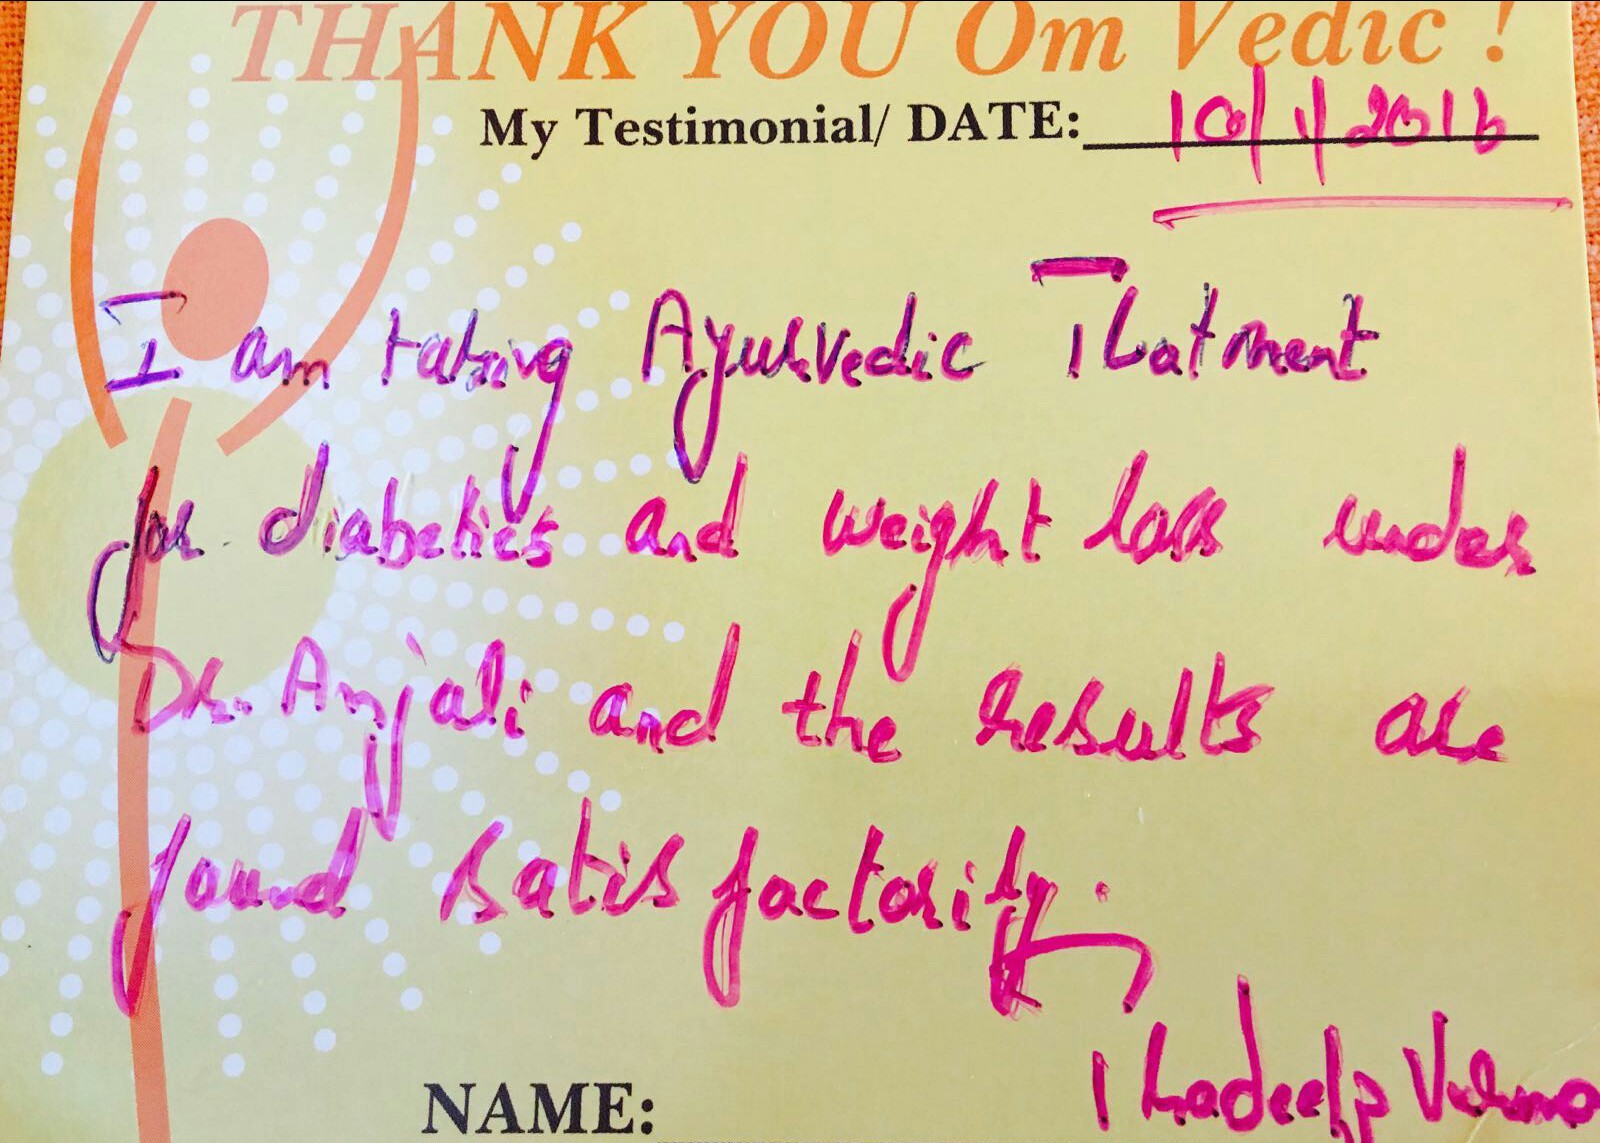 THANK YOU Om Vedic !
My Testimonial/ DATE: 10/1/2016
I am taking Ayurvedic Treatment
for diabetics and weight loss under
Dr. Anjali and the results are
found satisfactorily.
Pradeep Verma
NAME: